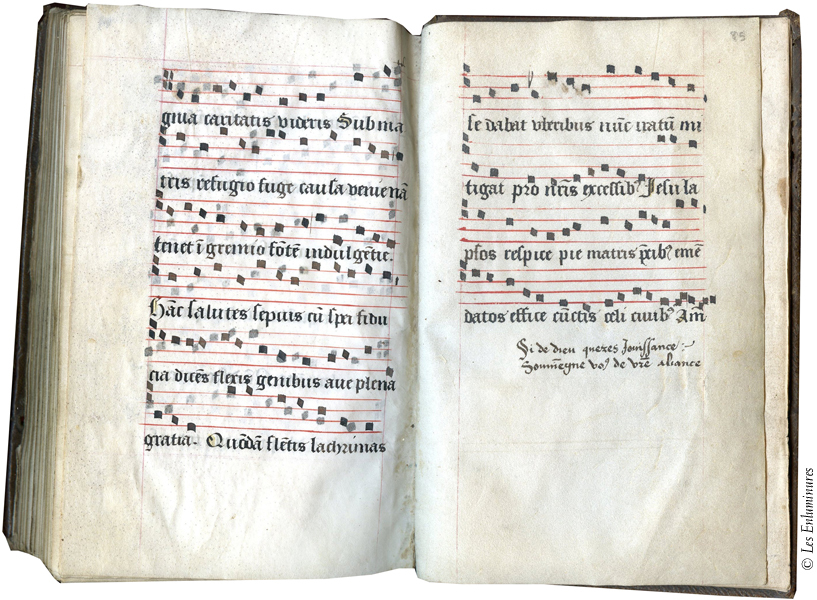 gnua caritatis videris Sub ma
tris refugio fuge causa veniẽ nã
tenet ĩ gremio fõtẽ indulgẽtie.
Hãc salutes sepius cũ spei fidu
cia dicẽs flexis genibus aue plena
gratia. Quõdã flẽtis lachrimas
85
se dabat vberibus nũc iratũ mi
tigat pro nr̃is excessibꝰ Jesu la
psos respice pie matris p̃cibꝰ emẽ
datos effice cũctis celi ciuibꝰ Am̃
Si de dieu queres Jouissance
Souuiẽgne voꝰ de vr̃e aliance
© Les Enluminures